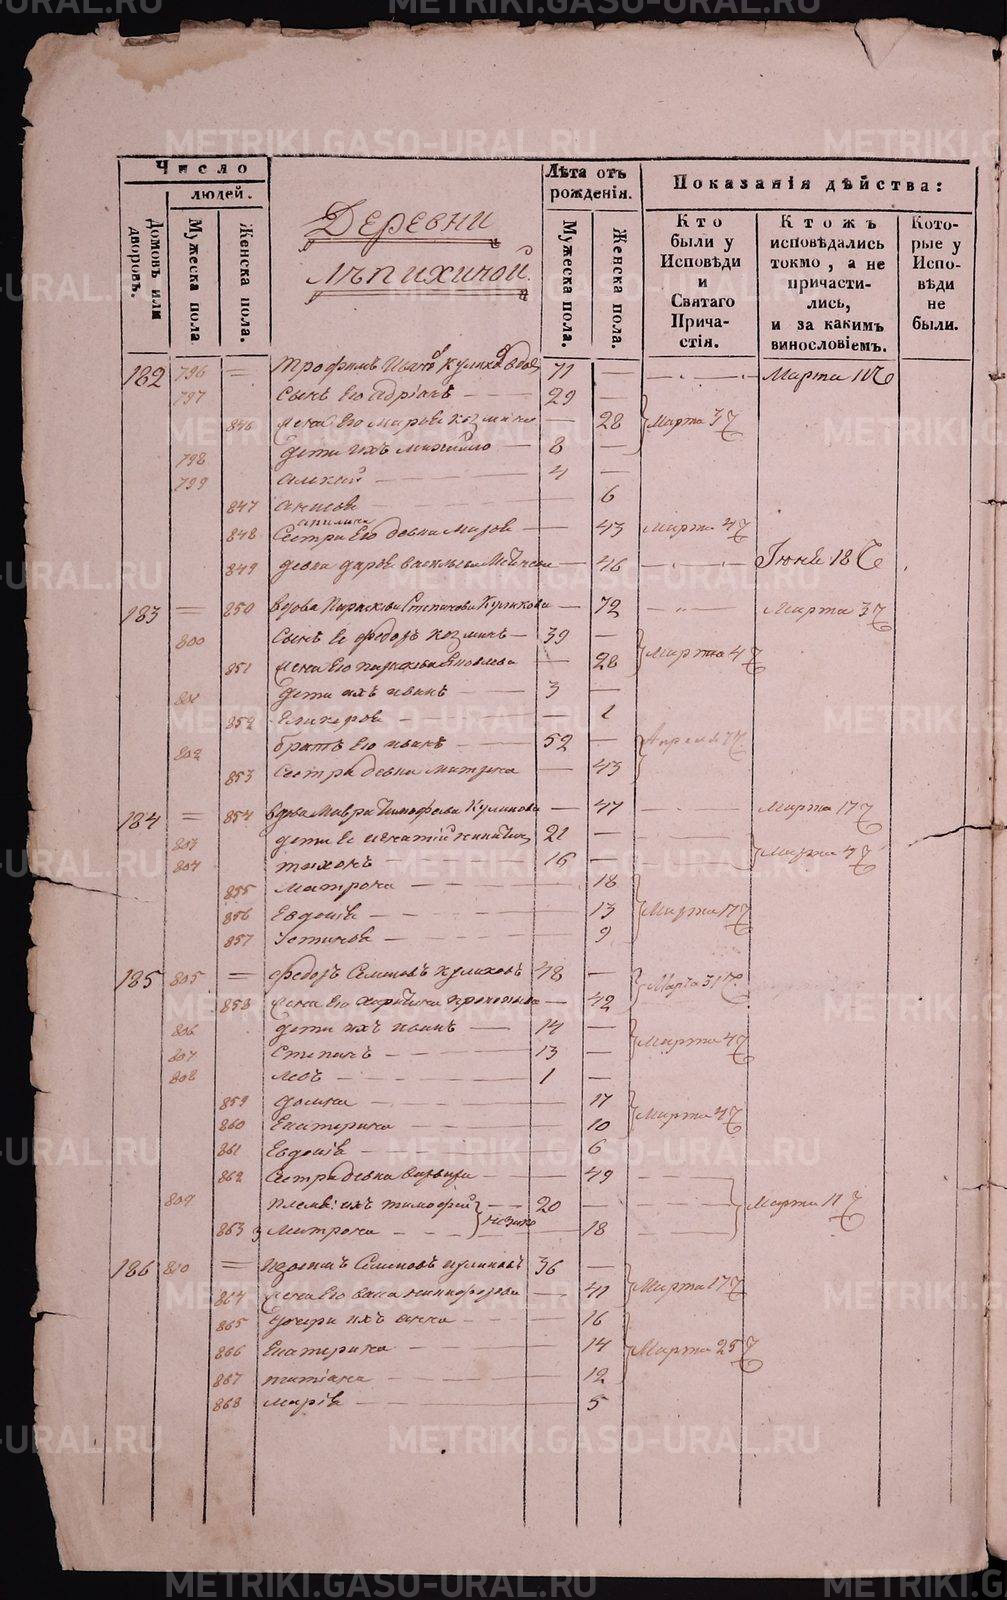 METRIKI.GASO-URAL.RU
Число
людей.
Домовъ или дворовъ.
Мужеска пола
Женска пола.
Деревни
Лѣпихиной.
Лѣта отъ рожденія.
Мужеска пола.
Женска пола.
Показанія дѣйства:
Кто были у Исповѣди и Святаго Прича-стія.
Ктожъ исповѣдались токмо, а не причасти-лись, и за какимъ винословіемъ.
Кото-рые у Испо-вѣди не были.
182 796 = Трофимъ Иван Куликовъ 71 — Марта 11
797 Сынъ Его Адріанъ 29 —
846 Жена Его Марѳа Козмина — 28 Марта 3
798 Дети ихъ Михайло 8 —
799 Алексей 4 —
847 Анисья 6
848 Сестра Его девка — 43 Марта 4
849 девка Дарья Васильева — 46 Іюня 18
183 = 850 Вдова Параскева Степанова Куликова — 72 Марта 3
800 Сынъ Ее Федоръ Козминъ 39 —
851 Жена Его Параскева Яковлева — 28 Марта 4
801 Дети ихъ Иванъ 3 —
852 Гликерья — 1
802 братъ Его Иванъ 52 — Апреля
853 Сестра девка Матрона — 43
184 = 854 Вдова Мавра Тимофеева Куликова — 47 Марта 17
803 дети Ее Игнатій 21 —
804 Тихонъ 16 — Марта 4
855 Матрона 18
856 Евдокія 13 Марта 17
857 Устинья 9
185 805 = Федоръ Семеновъ Куликовъ 48 — Марта 31
858 Жена Его Харитина Прокопьева — 42
806 дети ихъ Иванъ 14 — Марта 4
807 Степанъ 13 —
808 Левъ 1 —
859 Домна 17
860 Екатерина 10 Марта 4
861 Евдокія 6
862 Сестра девка Варвара 49
809 Племя: ихъ Тимофей 20 — Марта 11
863 Матрона 18
186 810 = Семеновъ Куликовъ 36 —
864 Жена Его Никифорова — 41 Марта 17
865 Дочери ихъ Анна 16
866 Екатерина 14 Марта 25
867 Татіана 12
868 Марія 5